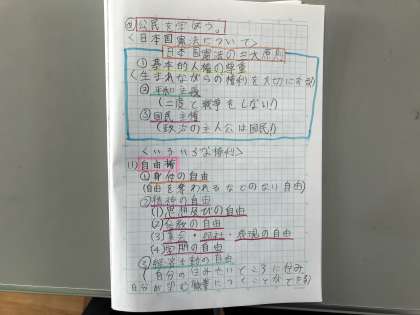 ◎公民を学ぼう。
<日本国憲法について>
日本国憲法の三大原則
①基本的人権の尊重
(生まれながらの権利を大切にする)
②平和主義
(二度と戦争をしない!)
③国民主権
(政治の主人公は国民!)
<いろいろな権利>
(1)自由権
①身体の自由
(自由を奪われるなどのない自由)
②精神の自由
(1)思想及びの自由
(2)の自由
(3)集会・結社・表現の自由
(4)学問の自由
③経済活動の自由
(自分の住みたいところに住み
自分が望む職業につくことができる)